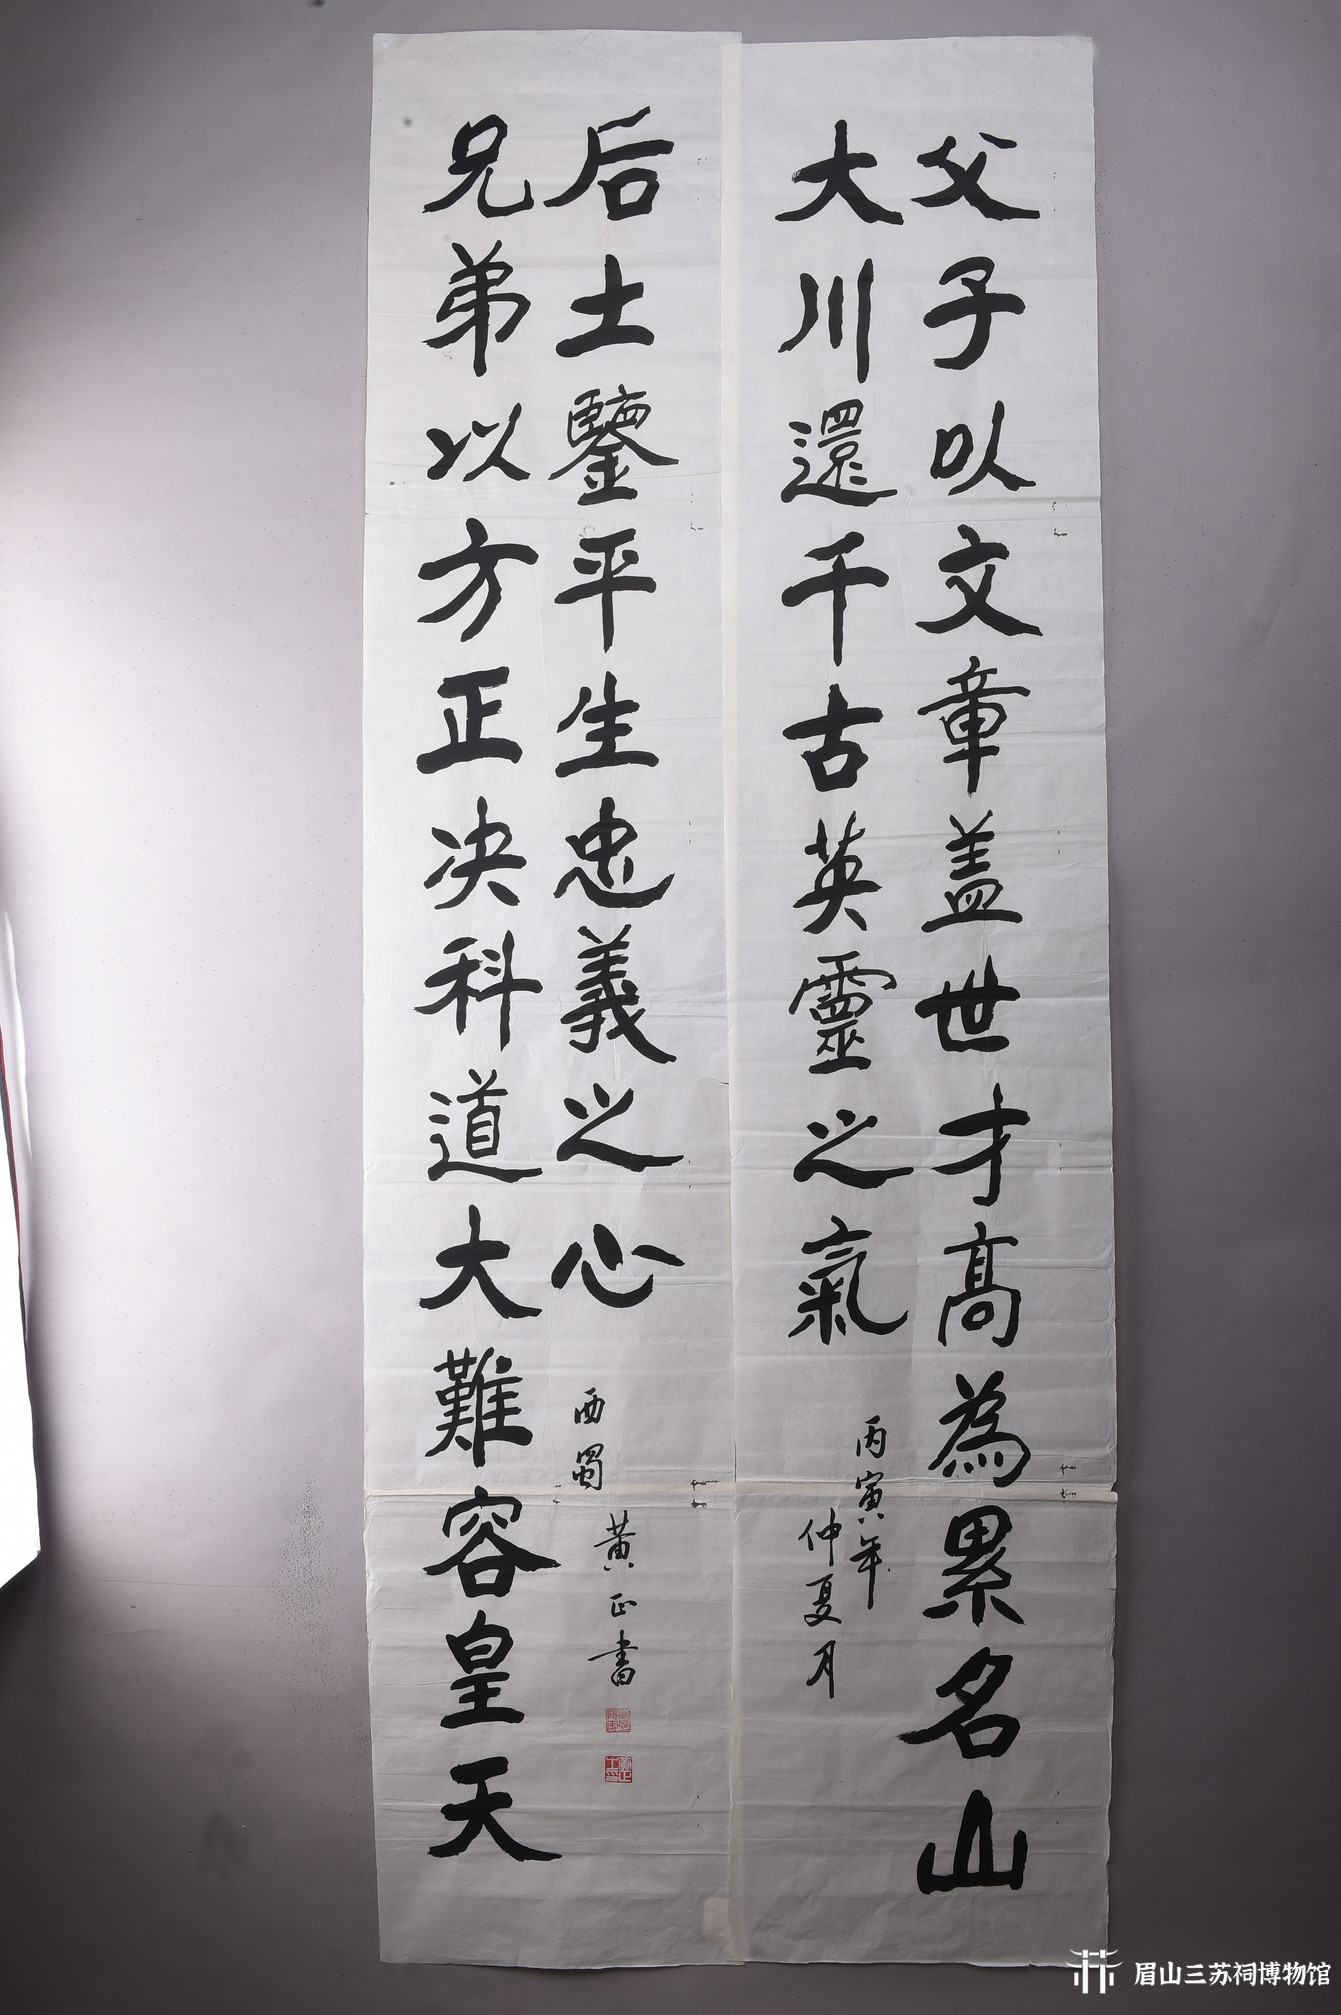 父子以文章盖世才髙為累名山
大川還千古英靈之氣
丙寅年
仲夏月
兄弟以方正决科道大難容皇天
后土鑒平生忠義之心
西蜀
黄正書
眉山三苏祠博物馆